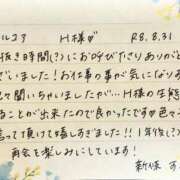 H様♡ R8.8.31
抜き時間(?)にお呼びたてありがと
ざいました!お仕事の事が気になりす
て聞いちゃいましたが、H様の生態
ることが出来たので良かったです✿色々
言って頂けて嬉しすぎました!!1年後(?)
再会を楽しみにしています!
新條 す